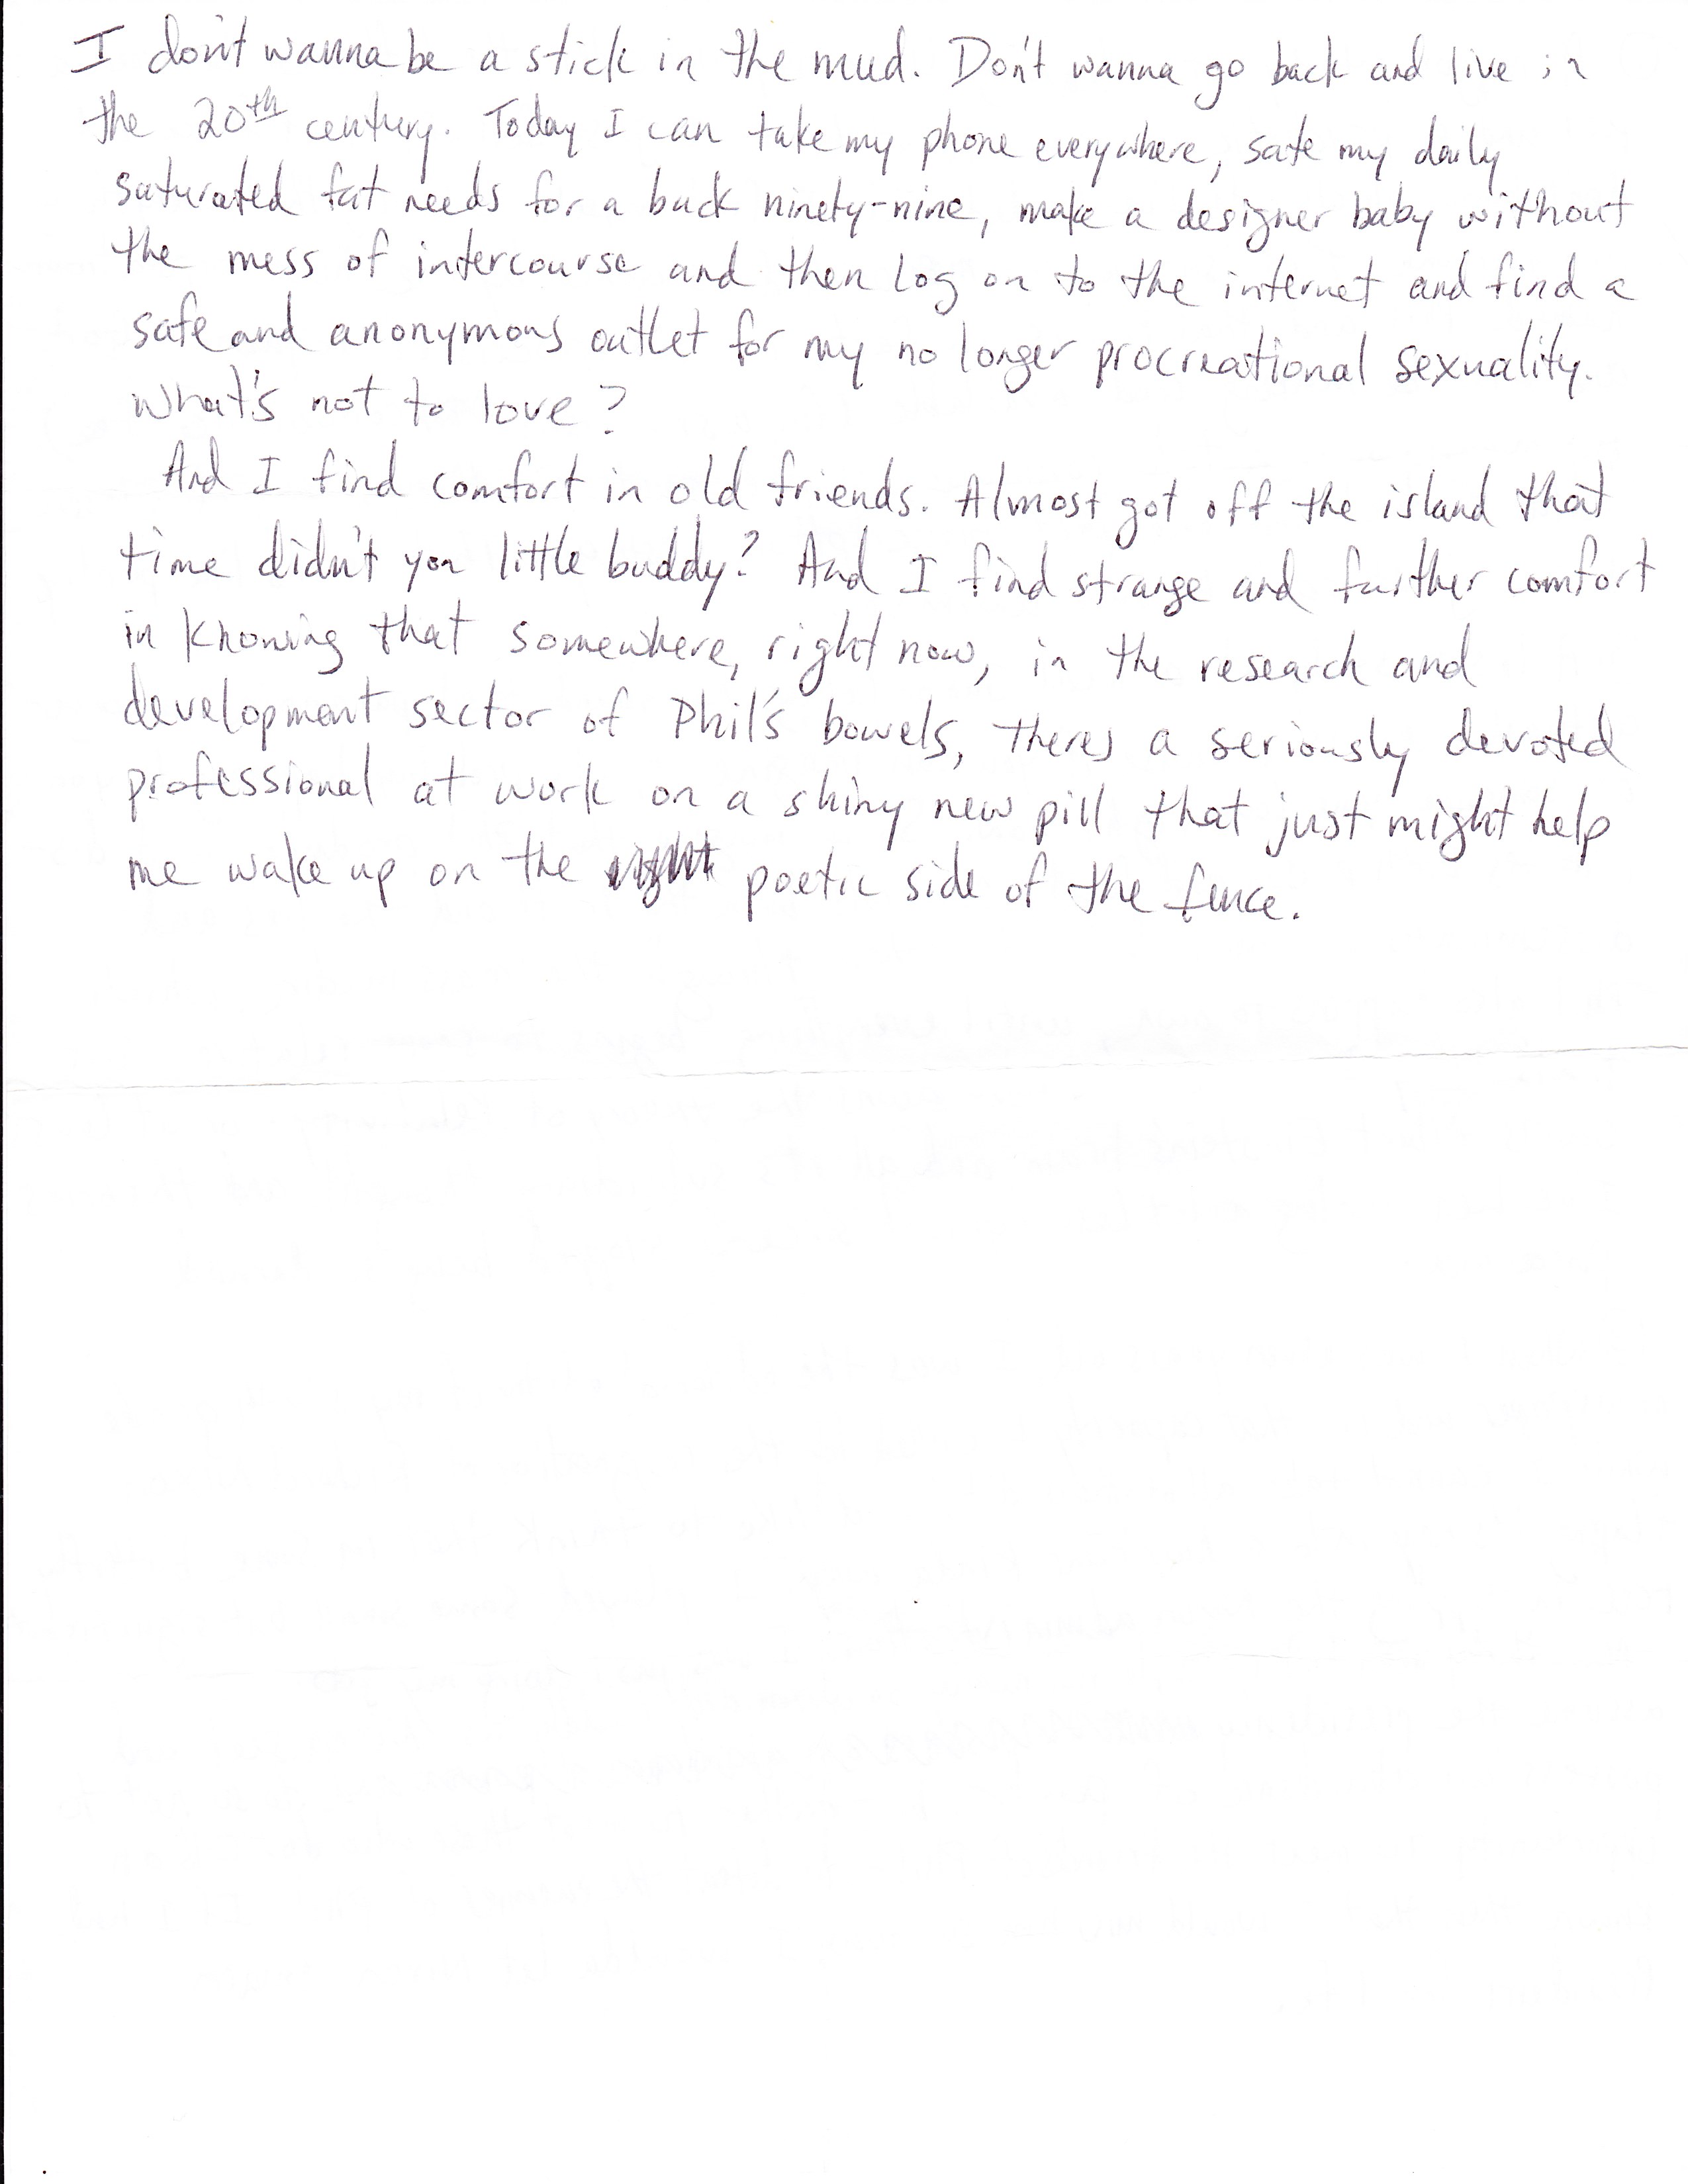 I don't wanna be a stick in the mud. Don't wanna go back and live in
the 20th century. Today I can take my phone everywhere, sate my daily
saturated fat needs for a buck ninety-nine, make a designer baby without
the mess of intercourse and then log on to the internet and find a
safe and anonymous outlet for my no longer procreational sexuality.
What's not to love?
And I find comfort in old friends. Almost got off the island that
time didn't you little buddy? And I find strange and further comfort
in knowing that somewhere, right now, in the research and
development sector of Phil's bowels, theres a seriously devoted
professional at work on a shiny new pill that just might help
me wake up on the poetic side of the fence.